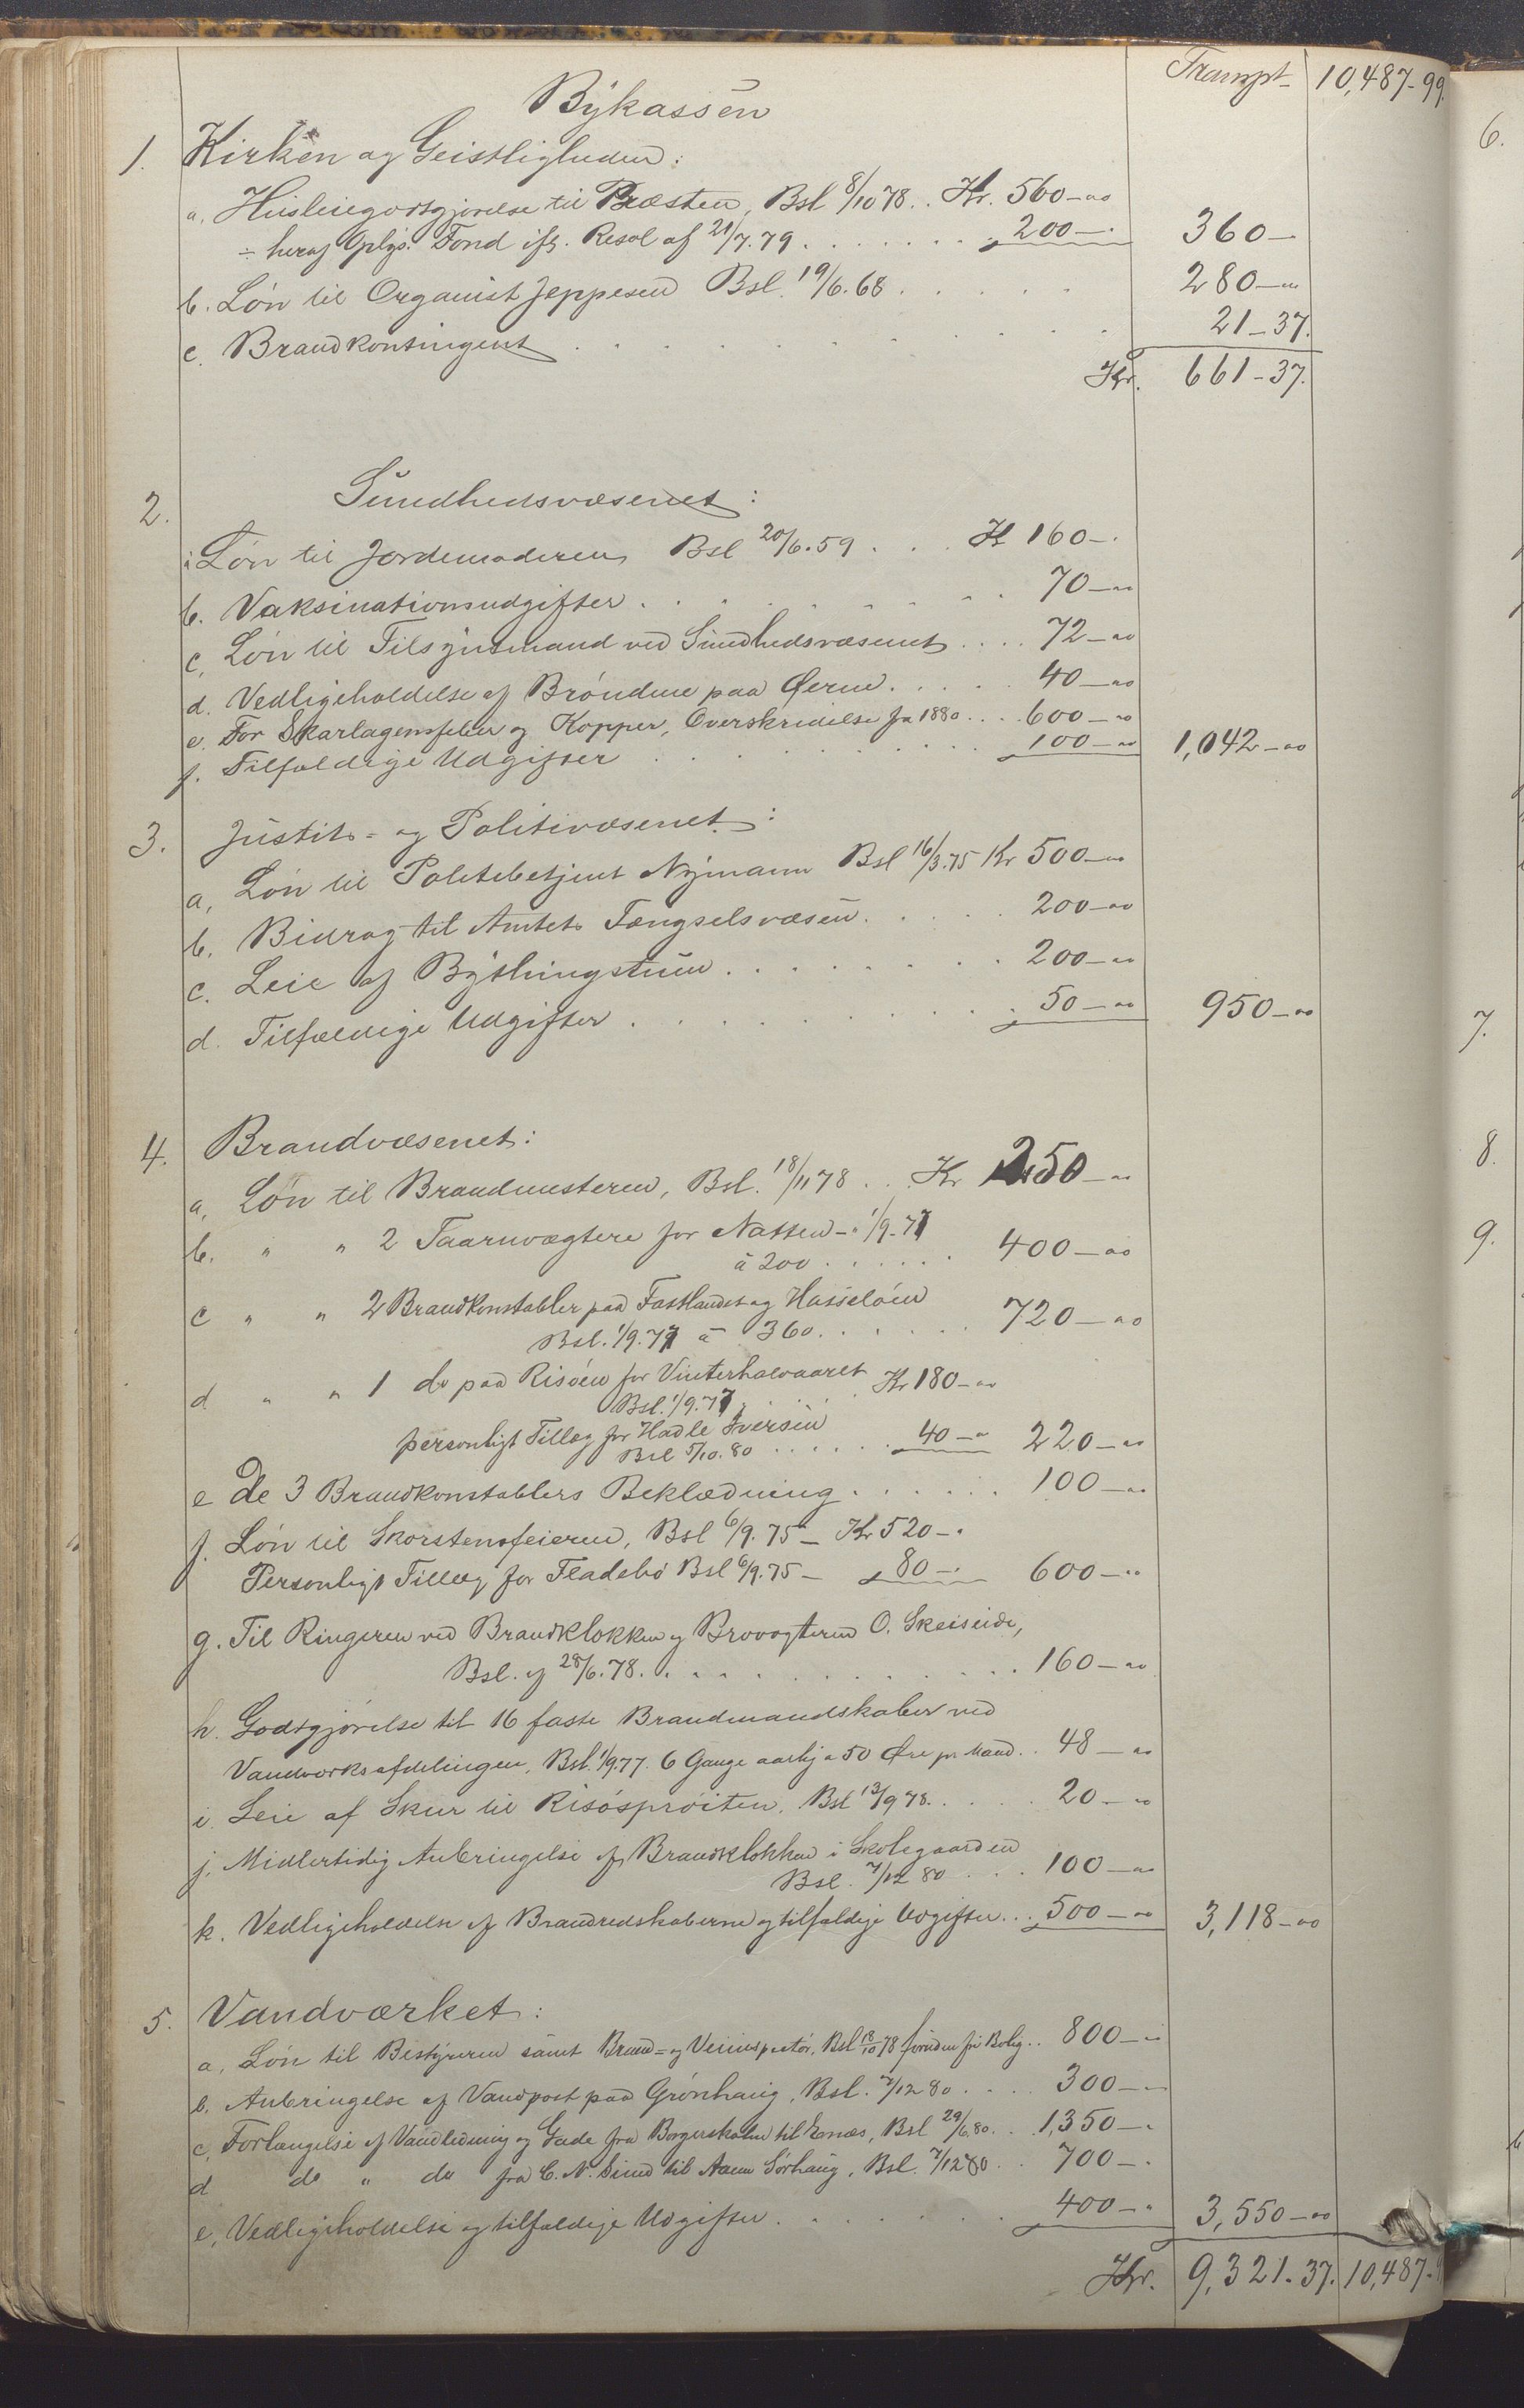 Transpt. 10,487-99.
Bykassen
1. Kirken og Geistligheden:
a. Husleiegodtgjørelse til Præsten, Bsl 8/10 78.. Kr. 560-00
÷ heraf Oplys. Fond ifg. Resol af 21/7.79 . . . . . . . 200-. 360-
b. Løn til Organist Jeppesen Bsl. 19/6.68 . . . . . 280-00
c. Brandkontingent . . . . . . . . 21-37.
Kr. 661-37.
2. Sundhedsvæsenet:
a Løn til Jordemoderen Bsl 20/6.59 . . . Kr 160-.
b. Vaksinationsudgifter . . . . . . . . 70-00
c, Løn til Tilsynsmand ved Sundhedsvæsenet . . . . 72-00
d. Vedligeholdelse af Brøndene paa Øerne . . . . . 40-00
e. For Skarlagensfeber og Kopper, Overskridelse fra 1880 . . . . 600-00
f. Tilfældige Udgifter . . . . . . . . 100-00 1,042-00
3. Justits- og Politivæsenet:
a, Løn til Politibetjent Nymann Bsl 16/3.75 Kr 500-00
b. Bidrag til Amtets Fængselsvæsen . . . . . 200-00
c. Leie af Bythingstuen . . . . . . . . 200-00
d. Tilfældige Udgifter . . . . . . . . . 50-00 950-00
4. Brandvæsenet:
a, Løn til Brandmesteren, Bsl. 18/11 78 . . Kr 250-00
b. " " 2 Taarnvægtere for Natten - " 1/9-77
à 200 . . . . . . 400-00
c " " 2 Brandkonstabler paa Fastlandet og Hasseløen
Bsl. 1/9.77 à 360 . . . . . . 720-00
d " " 1 do paa Risøen for Vinterhalvaaret Kr 180-00
Bsl. 1/9.77 . . .
personligt Tillæg for Hadle Iversen
Bsl 5/10.80 . . . . . . 40-00 220-00
e De 3 Brandkonstablers Beklædning . . . . . . 100-00
f. Løn til Skorstensfeieren, Bsl 6/9.75 - Kr 520-.
Personligt Tillæg for Fladebø Bsl 6/9.75 - 80-. 600-00
g. Til Ringeren ved Brandklokken og Brovogteren O. Skeiseide,
Bsl. af 28/6.78 . . . . . . . . . . 160-00
h. Godtgjørelse til 16 faste Brandmandskaber ved
Vandværksafdelingen, Bsl. 1/9.77. 6 Gange aarlig a 50 Øre pr Mand . . 48-00
i. Leie af Skur til Risøsprøiten. Bsl 13/9 78 . . . . . 20-00
j. Midlertidig Anbringelse af Brandklokken i Skolegaarden
Bsl. 7/12 80 . . . . 100-00
k. Vedligeholdelse af Brandredskaberne og tilfældige Udgifter . . . 500-00 3,118-00
5. Vandværket:
a, Løn til Bestyreren samt Brand- og Veiinspektør, Bsl 18/10 78 foruden fri Bolig . . 800-00
b. Anbringelse af Vandpost paa Grønhaug, Bsl. 7/12 80 . . . . 300-00
c, Forlængelse af Vandledning og Gade fra Borgerskolen til Esnæs, Bsl 29/6.80 . . 1,350-.
d do " do fra C. N. Sund til Sørhaug, Bsl. 7/12 80 . . 700-.
e, Vedligeholdelse og tilfældige Udgifter . . . . . . . 400-. 3,550-00
Kr. 9,321.37. 10,487-
6.
7.
8.
9.